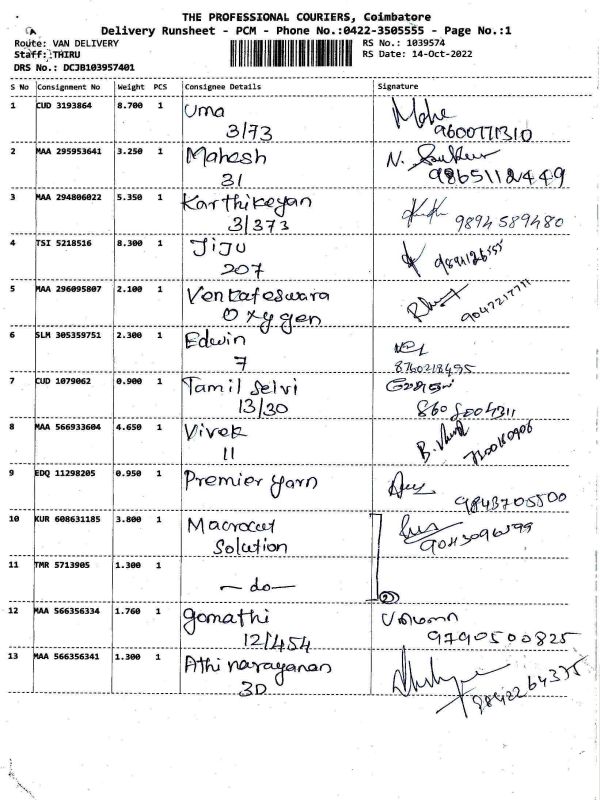 THE PROFESSIONAL COURIERS, Coimbatore
Delivery Runsheet - PCM - Phone No.:0422-3505555 - Page No.:1
Route: VAN DELIVERY RS No.: 1039574
Staff: THIRU RS Date: 14-Oct-2022
DRS No.: DCJB103957401
S No Consignment No Weight PCS Consignee Details Signature
1 CUD 3193864 8.700 1 Uma
3/73 9600771310
2 MAA 295953641 3.250 1 Mahesh N.
31 9865112449
3 MAA 294806022 5.350 1 Karthikeyan
3/373 9894589480
4 TSI 5218516 8.300 1 JIJU
207
5 MAA 296095807 2.100 1 Venkateswara
Oxygen 9047217711
6 SLM 305359751 2.300 1 Edwin
7 8760218495
7 CUD 1079062 0.900 1 Tamil Selvi
13/30 8608004311
8 MAA 566933604 4.650 1 Vivek
11
9 EDQ 11298205 0.950 1 Premier yarn
9843705500
10 KUR 608631185 3.800 1 Macrocut
Solution
11 TMR 5713905 1.300 1
— do — 2
12 MAA 566356334 1.760 1 Gomathi
12/454 9790500825
13 MAA 566356341 1.300 1 Athi narayanan
3D 9842264335